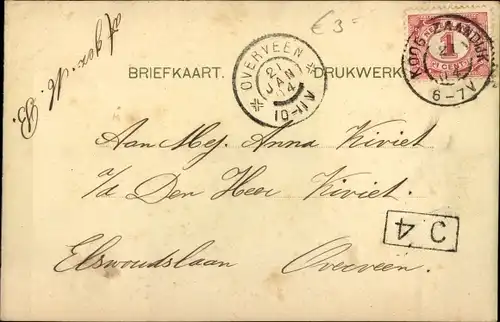 € 3-
BRIEFKAART. DRUKWERK
OVERVEEN
21 JAN 04
10-11V
KOOG-ZAANDIJK
6-7V
1
CENT
Aan Mej. Anna Kiviet
a/d Den Heer Kiviet
Elswoudslaan Overveen
C 4